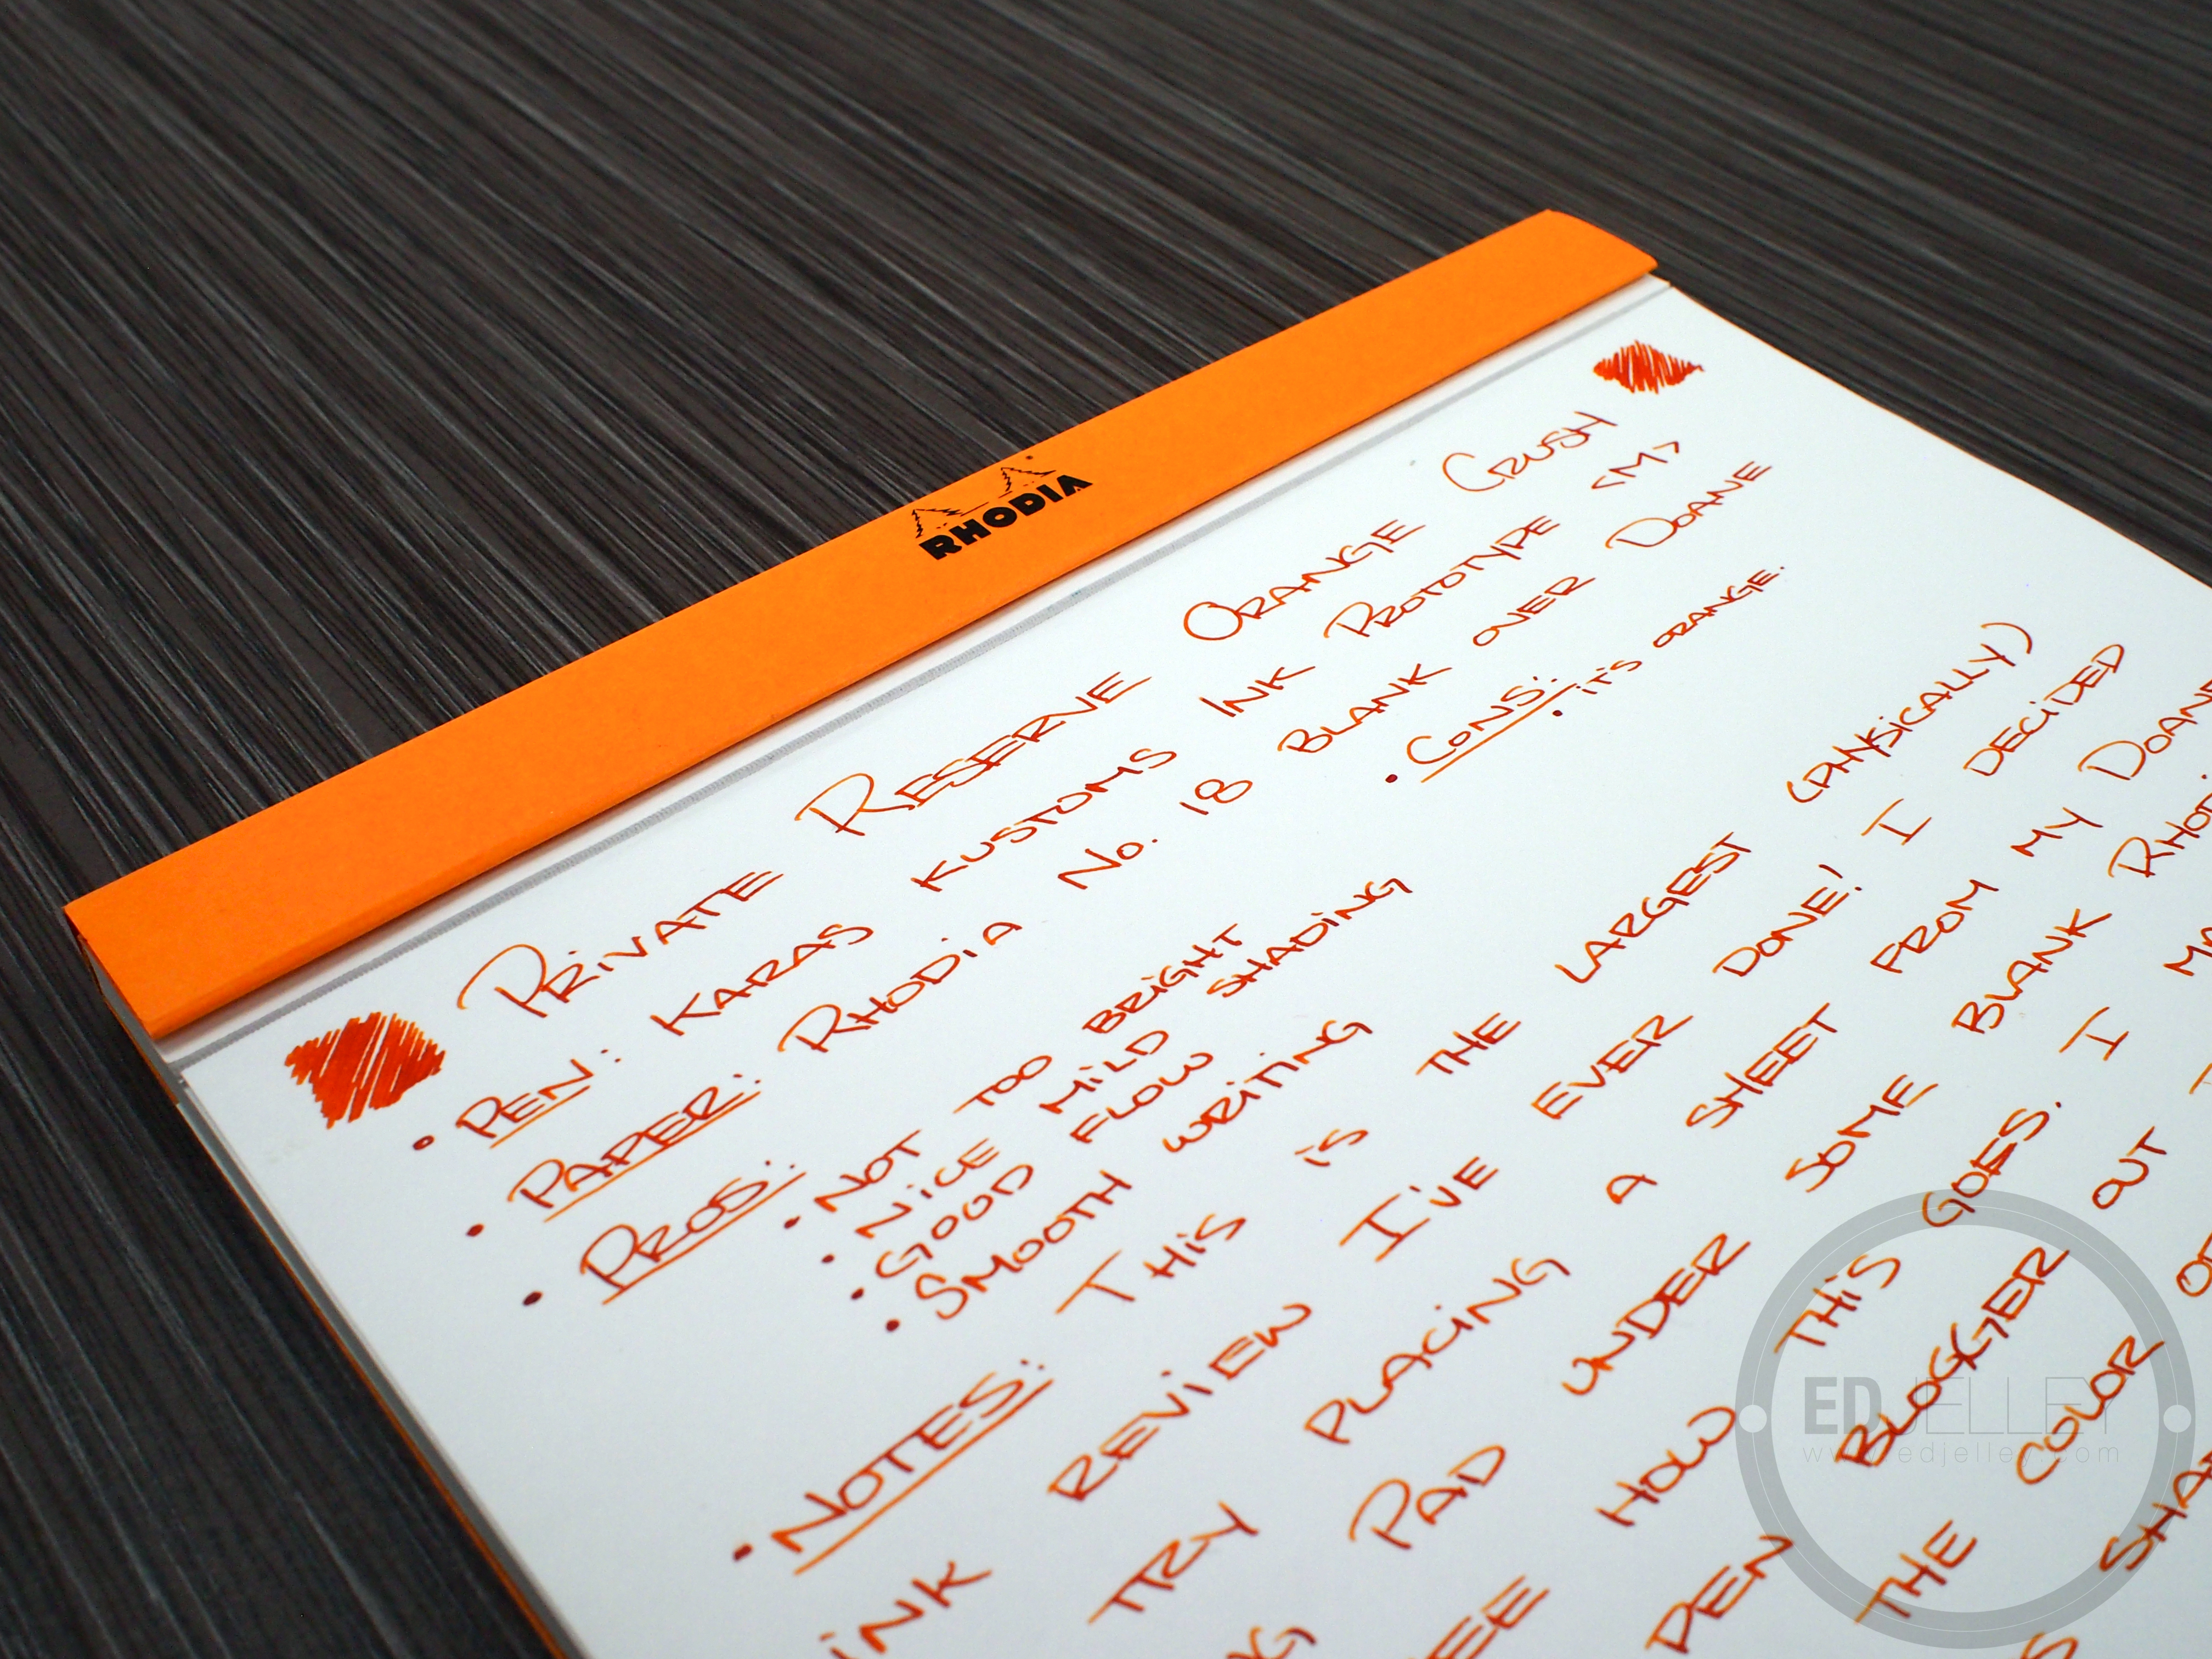 RHODIA
PRIVATE RESERVE ORANGE CRUSH
• PEN: KARAS KUSTOMS INK PROTOTYPE <M>
• PAPER: RHODIA No. 18 BLANK OVER DOANE
• PROS: • NOT TOO BRIGHT • CONS: • IT'S ORANGE.
• NICE MILD SHADING
• GOOD FLOW
• SMOOTH WRITING
• NOTES: THIS IS THE LARGEST (PHYSICALLY)
INK REVIEW I'VE EVER DONE! I DECIDED
TRY PLACING A SHEET FROM MY DOANE
PAD UNDER SOME BLANK
HOW THIS GOES. I
PEN BLOGGER OUT
THE COLOR
ED JELLEY
www.edjelley.com